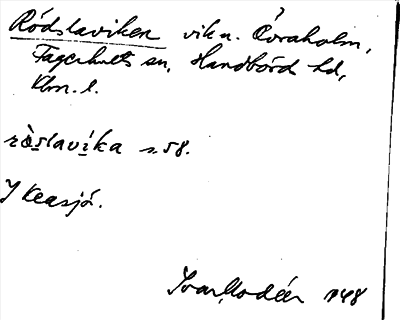 Rödslaviken vik u. Övraholm,
Fagerhults sn, Handbörd hd,
Klm. l.
ròslavíka s. 58.
I Keasjö.
Ivar Modéer 1948